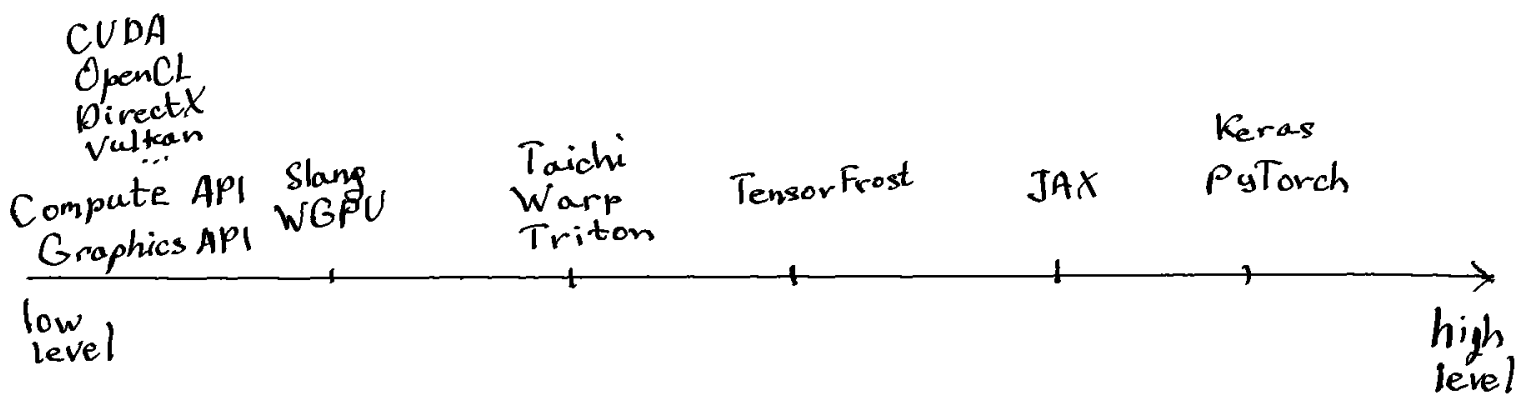 CUDA
OpenCL
DirectX
Vulkan
...
Compute API
Graphics API
Slang
WGPU
Taichi
Warp
Triton
TensorFrost
JAX
Keras
PyTorch
low
level
high
level